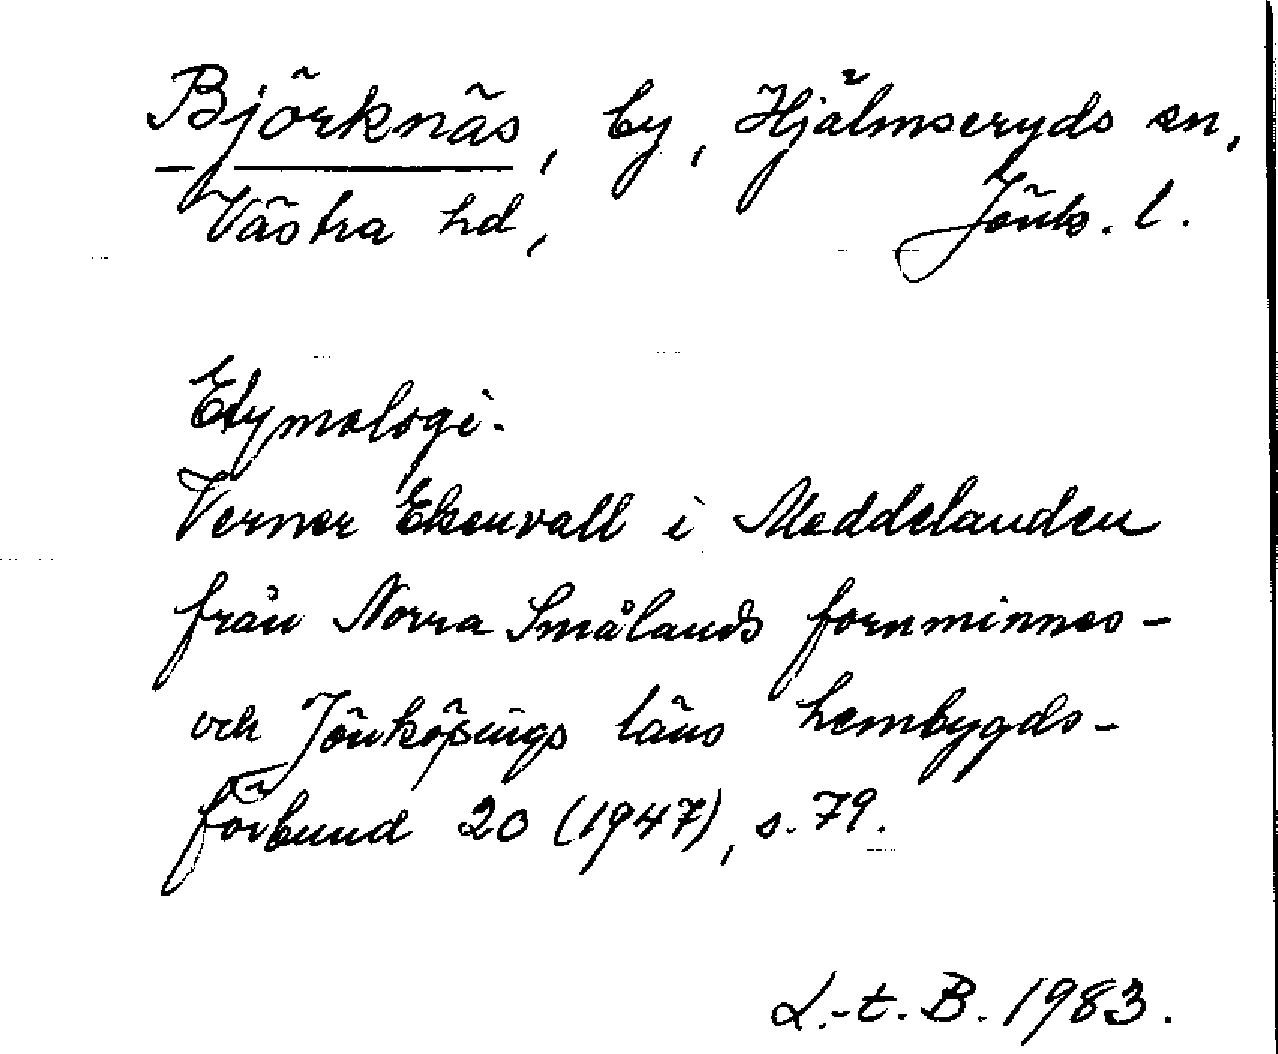 Björknäs, by, Hjälmseryds sn,
Västra hd, Jönk. l.
Etymologi.
Verner Ekenvall i Meddelanden
från Norra Smålands fornminnes-
och Jönköpings läns hembygds-
förbund 20 (1947), s. 79.
L.-t. B. 1983.